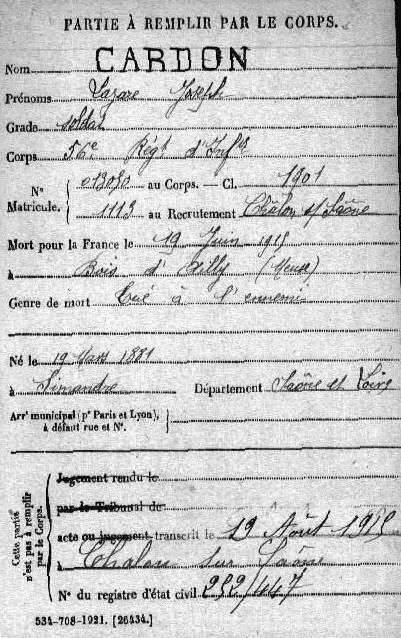 PARTIE À REMPLIR PAR LE CORPS.
Nom CARDON
Prénoms Lazare Joseph
Grade soldat
Corps 56e Régt d'Infie
N° Matricule. 013030 au Corps. — Cl. 1901
1113 au Recrutement Châlon s/ Saône
Mort pour la France le 19 Juin 1915
à Bois d'Ailly (Meuse)
Genre de mort Tué à l'ennemi
Né le 19 Mars 1881
à Simandre Département Saône et Loire
Arrt municipal (pr Paris et Lyon), à défaut rue et N°.
Cette partie n'est pas à remplir par le Corps.
Jugement rendu le
par le Tribunal de
acte ou jugement transcrit le 19 Août 1915
à Chalon sur Saône
N° du registre d'état civil 292/447
534-708-1921. [26434.]